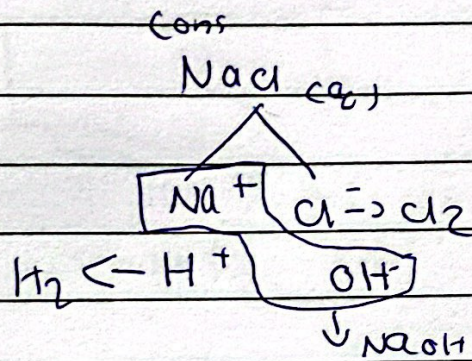 Cons
NaCl (aq)
Na+ Cl- -> Cl2
H2 <- H+ OH-
↓ NaOH